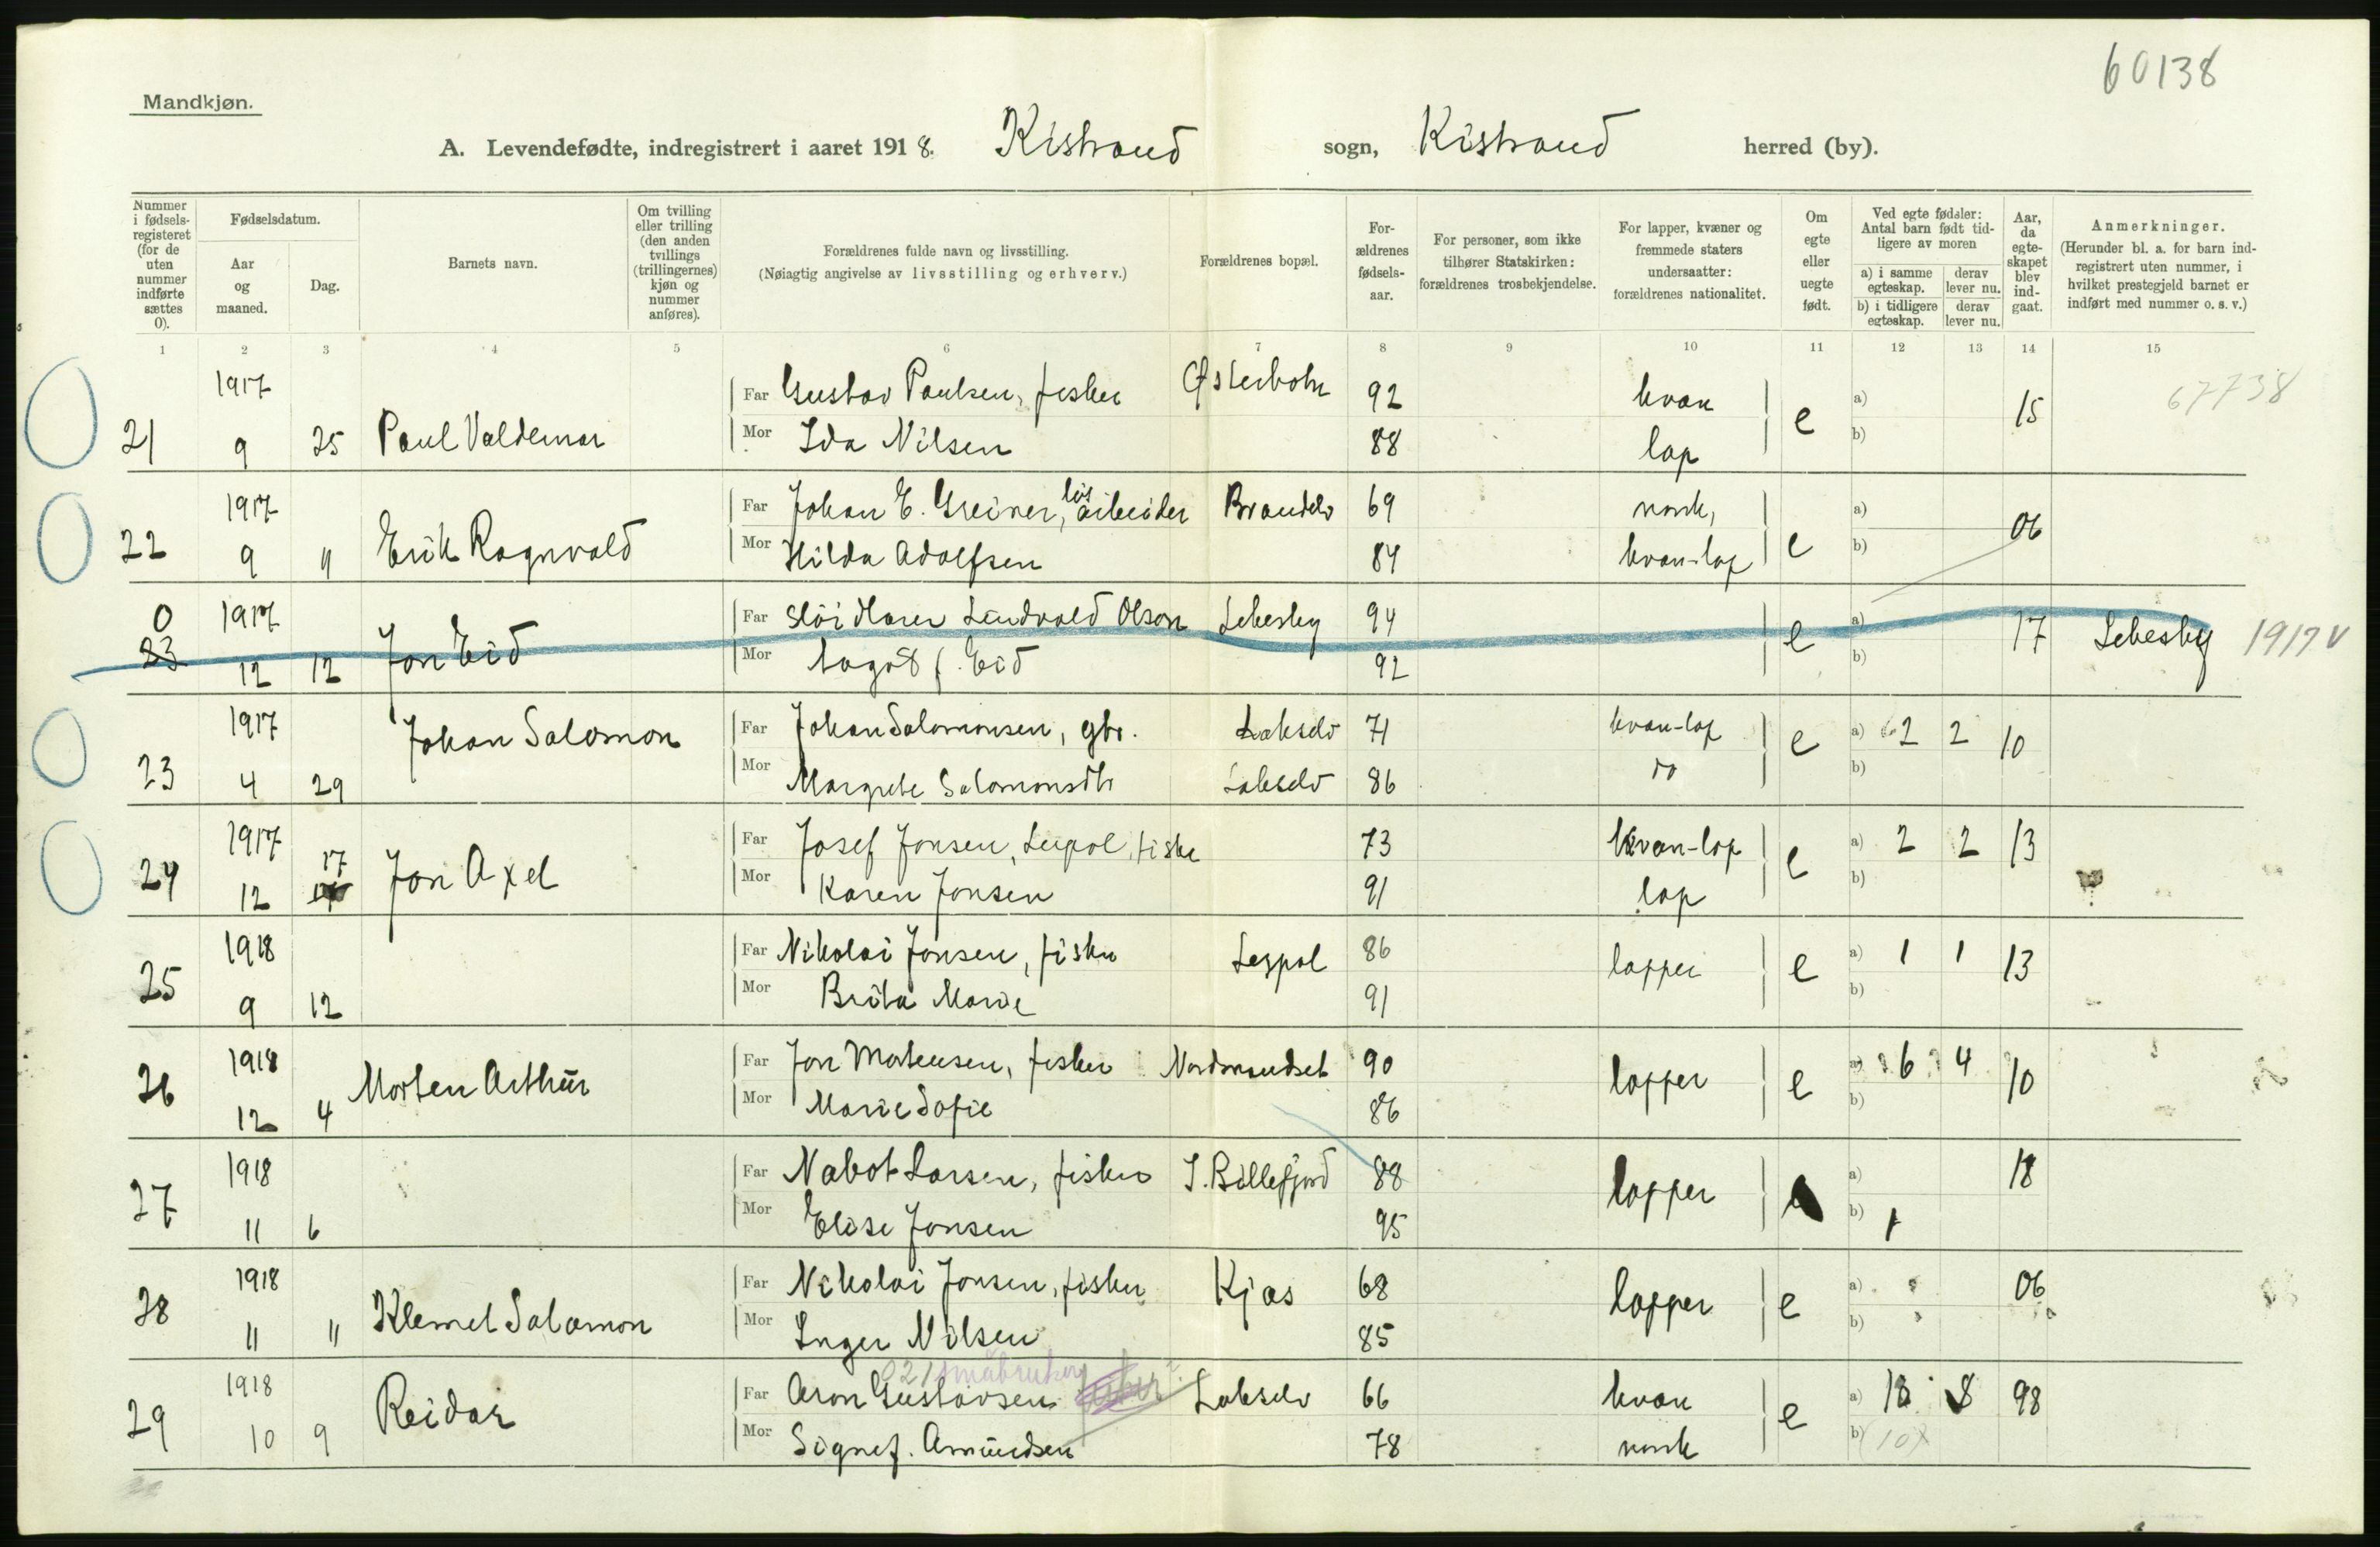 60138
Mandkjøn.
A. Levendefødte, indregistrert i aaret 1918. Kistrand sogn, Kistrand herred (by).
Nummer i fødsels-registeret (for de uten nummer indførte sættes 0).
Fødselsdatum.
Aar og maaned.
Dag.
Barnets navn.
Om tvilling eller trilling (den anden tvillings (trillingernes) kjøn og nummer anføres).
Forældrenes fulde navn og livsstilling.
(Nøiagtig angivelse av livsstilling og erhverv.)
Forældrenes bopæl.
For-ældrenes fødsels-aar.
For personer, som ikke tilhører Statskirken: forældrenes trosbekjendelse.
For lapper, kvæner og fremmede staters undersaatter: forældrenes nationalitet.
Om egte eller uegte født.
Ved egte fødsler: Antal barn født tid-ligere av moren
a) i samme egteskap.
derav lever nu.
b) i tidligere egteskap.
derav lever nu.
Aar, da egte-skapet blev ind-gaat.
Anmerkninger.
(Herunder bl. a. for barn ind-registrert uten nummer, i hvilket prestegjeld barnet er indført med nummer o. s. v.)
1 2 3 4 5 6 7 8 9 10 11 12 13 14 15
1917 Far Gustav Paulsen, fisker Østerbotn 92 kvæn a) 15 67738
21 9 25 Paul Valdemar Mor Ida Nilsen 88 lap e b)
1917 Far Johan E. Greiner, løsarbeider Brandelv 69 norsk, a) 06
22 9 " Erik Ragnvald Mor Hilda Adolfsen 84 kvæn-lap e b)
0 1917 Far Lindvald Olsen Lebesby 94 a) 17 Lebesby 1917 v
23 12 12 Jon Eid Mor Aagot f. Eid 92 e b)
1917 Johan Salomon Far Johan Salomonsen, gbr. Lakselv 71 kvæn-lap e a) 2 2 10
23 4 29 Mor Margrete Salomonsdtr Lakselv 86 do b)
1917 17 Far Josef Jonsen, Leirpol, fisker 73 kvæn-lap a) 2 2 13
24 12 Jon Axel Mor Karen Jonsen 91 lap e b)
1918 Far Nikolai Jonsen, fisker Leirpol 86 lapper e a) 1 1 13
25 9 12 Mor Brita Marie 91 b)
1918 Far Jon Mortensen, fisker Nordmandset 90 lapper e a) 6 4 10
26 12 4 Morten Arthur Mor Marie Sofie 86 b)
1918 Far Nabot Larsen, fisker I. Billefjord 88 lapper a) 18
27 11 6 Mor Elise Jonsen 95 b) 1
1918 Far Nikolai Jonsen, fisker Kjæs 68 lapper e a) 06
28 11 " Klemet Salomon Mor Inger Nilsen 85 b)
021 småbruker
1918 Far Aron Gustavsen Lakselv 66 kvæn e a) 8 98
29 10 9 Reidar Mor Signe f. Amundsen 78 norsk b) (10)